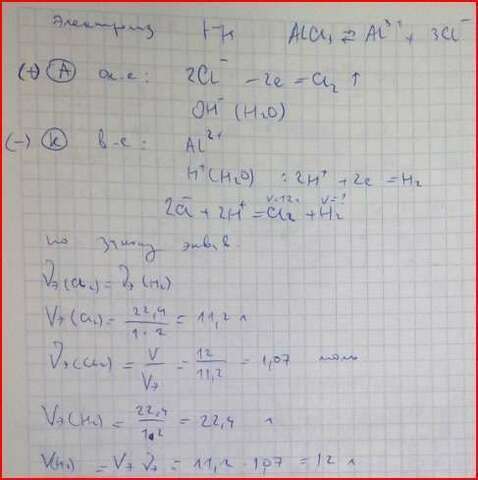 Электролиз AlCl₃ ⇄ Al³⁺ + 3Cl⁻
(+) (A) 2Cl⁻ − 2e = Cl₂ ↑
OH⁻ (H₂O)
(−) (K) Al³⁺
H⁺(H₂O) : 2H⁺ + 2e = H₂
2Cl⁻ + 2H⁺ = Cl₂ + H₂
по закону эквив.
ν₃(Cl₂) = ν₃(H₂)
V₃(Cl₂) = 22,4 / 1·2 = 11,2 л
ν₃(Cl₂) = V / V₃ = 12 / 11,2 = 1,07 моль
V₃(H₂) = 22,4 / 1·2 = 22,4 л
V(H₂) = V₃ ν₃ = 11,2 · 1,07 = 12 л